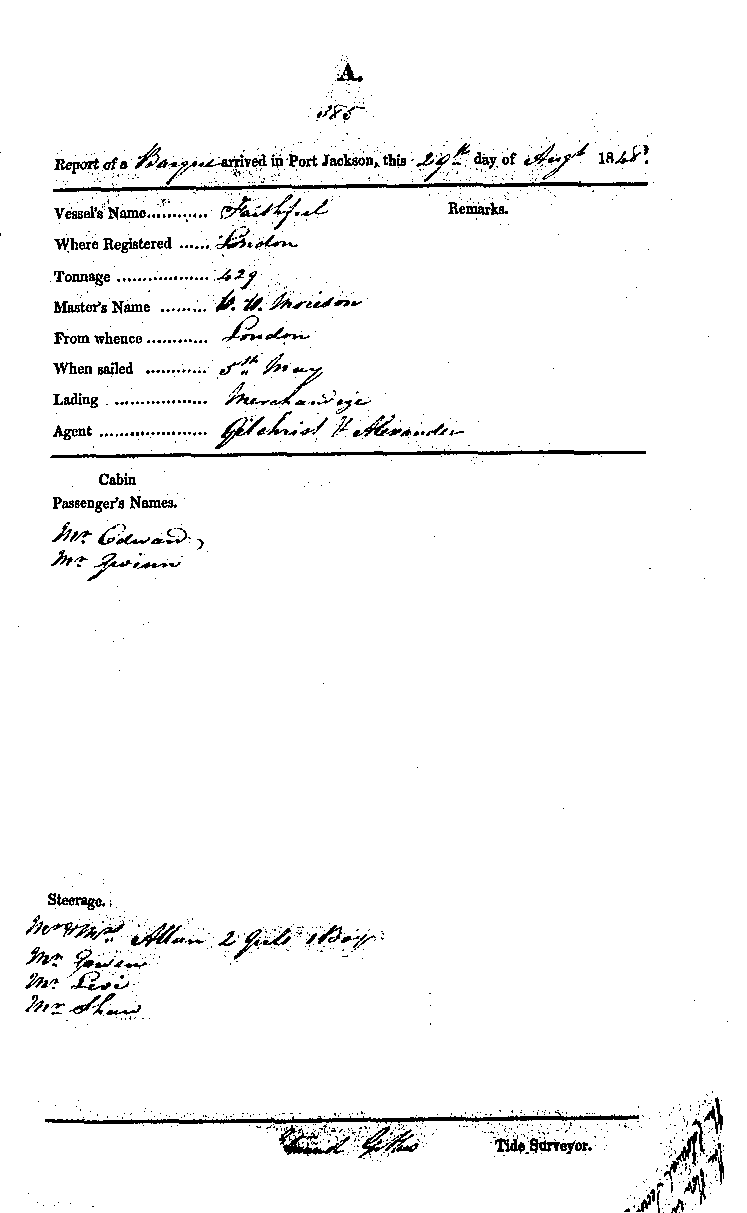 A.
385
Report of a Barque arrived in Port Jackson, this 29th day of Augt 1848.
Vessel's Name............ Faithful Remarks.
Where Registered ...... London
Tonnage .................. 429
Master's Name ......... Morison
From whence ............ London
When sailed ............ 5th May
Lading .................. Merchandize
Agent ..................... Gilchrist & Alexander
Cabin
Passenger's Names.
Mr Edward
Mr Gwinn
Steerage.
Mr & Mrs Allan 2 Girls 1 Boy
Mr
Mr Levi
Mr Shaw
Tide Surveyor.